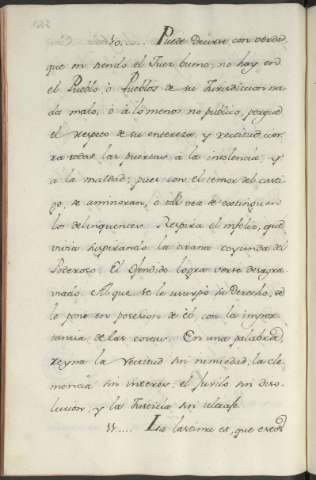 10.... Puede decirse con verdad,
que en siendo el Juez bueno, no hay en
el Pueblo, ò Pueblos de su Jurisdiccion na-
da malo, ò à lo menos no publico, porque
el respeto de su entereza, y rectitud cier-
ra todas las puertas à la insolencia, y
à la maldad; pues con el temor del casti-
go, se aminoran, ò tal vez se extinguen
los delinquentes. Respira el infeliz, que
vivia suspirando la tirana coyunda del
Poderoso. El Ofendido logra verse desagra-
viado. Al que se le usurpó su Derecho, se
le pone en posesion de èl, con la
de las costas. En una palabra,
reyna la rectitud sin nimiedad, la cle-
mencia sin interes, el Jubilo sin diso-
lucion, y la Justicia sin ultraje.
11.... La lastima es, que